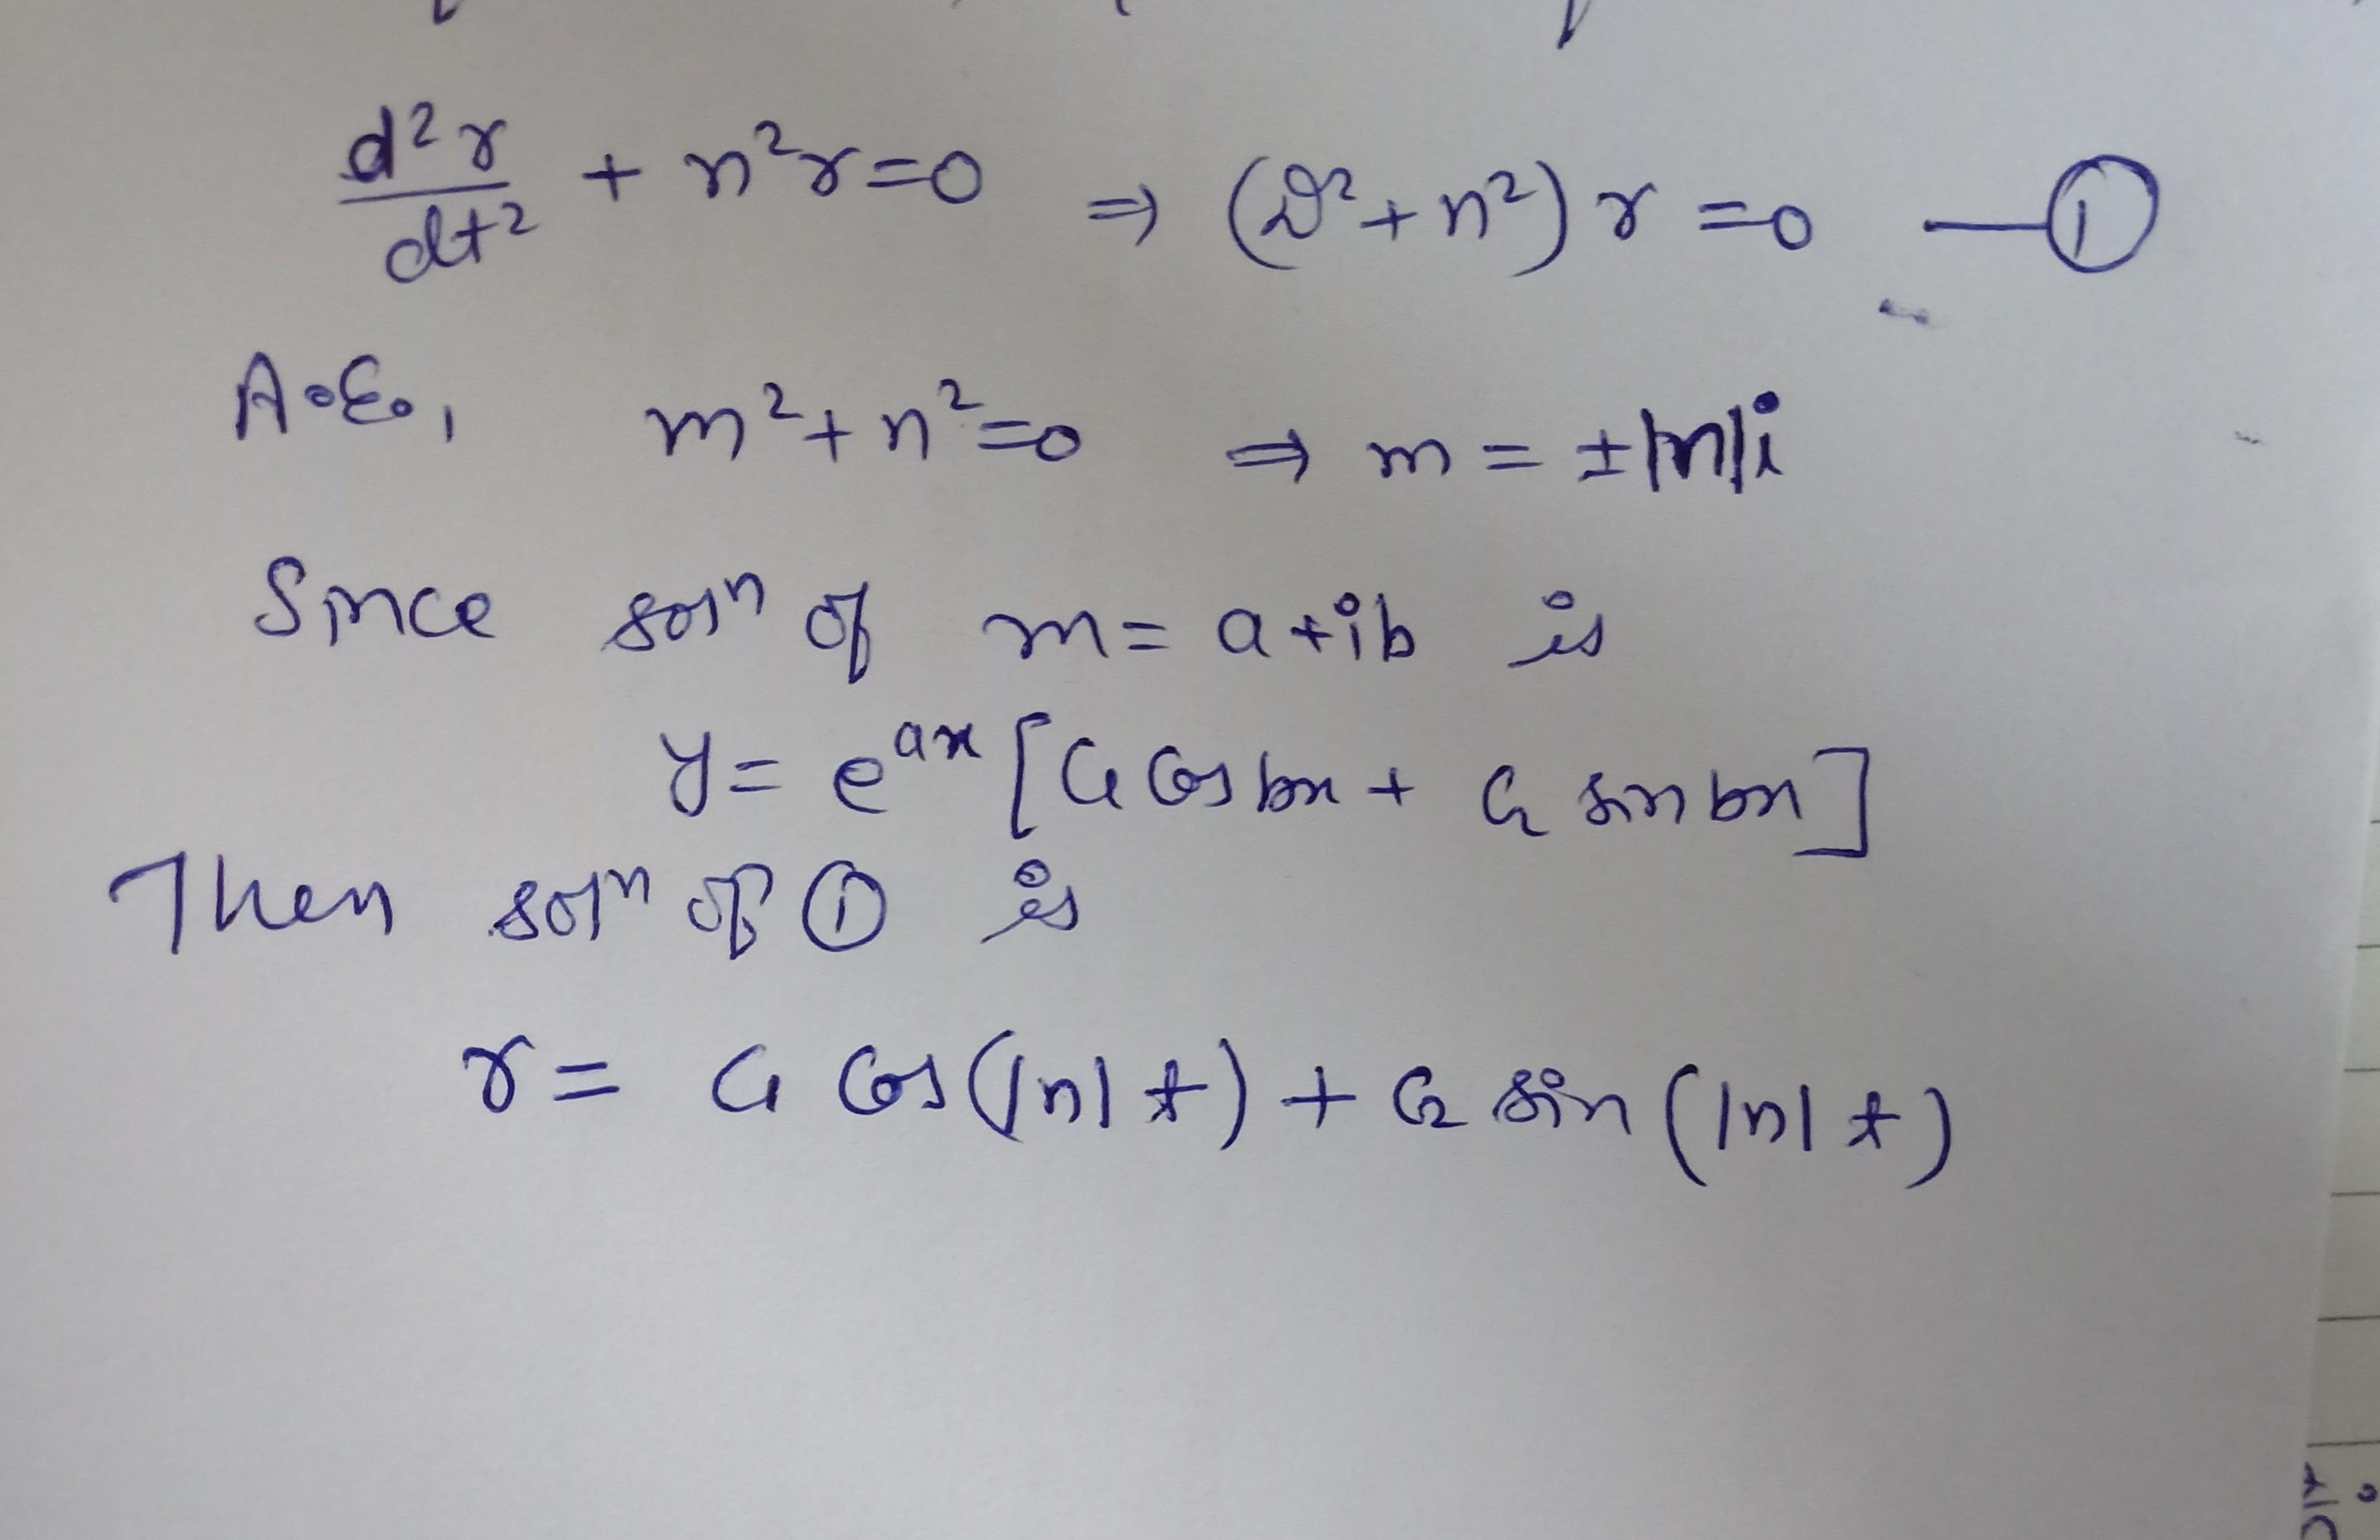 d²r/dt² + n²r=0 ⇒ (D²+n²) r =0 —①
A.E., m²+n²=0 ⇒ m = ±|n|i
Since solⁿ of m= a+ib is
y= e^{ax} [C₁ Cos bx + C₂ sin bx]
Then solⁿ of ① is
r= C₁ Cos(|n| t) + C₂ sin (|n| t)